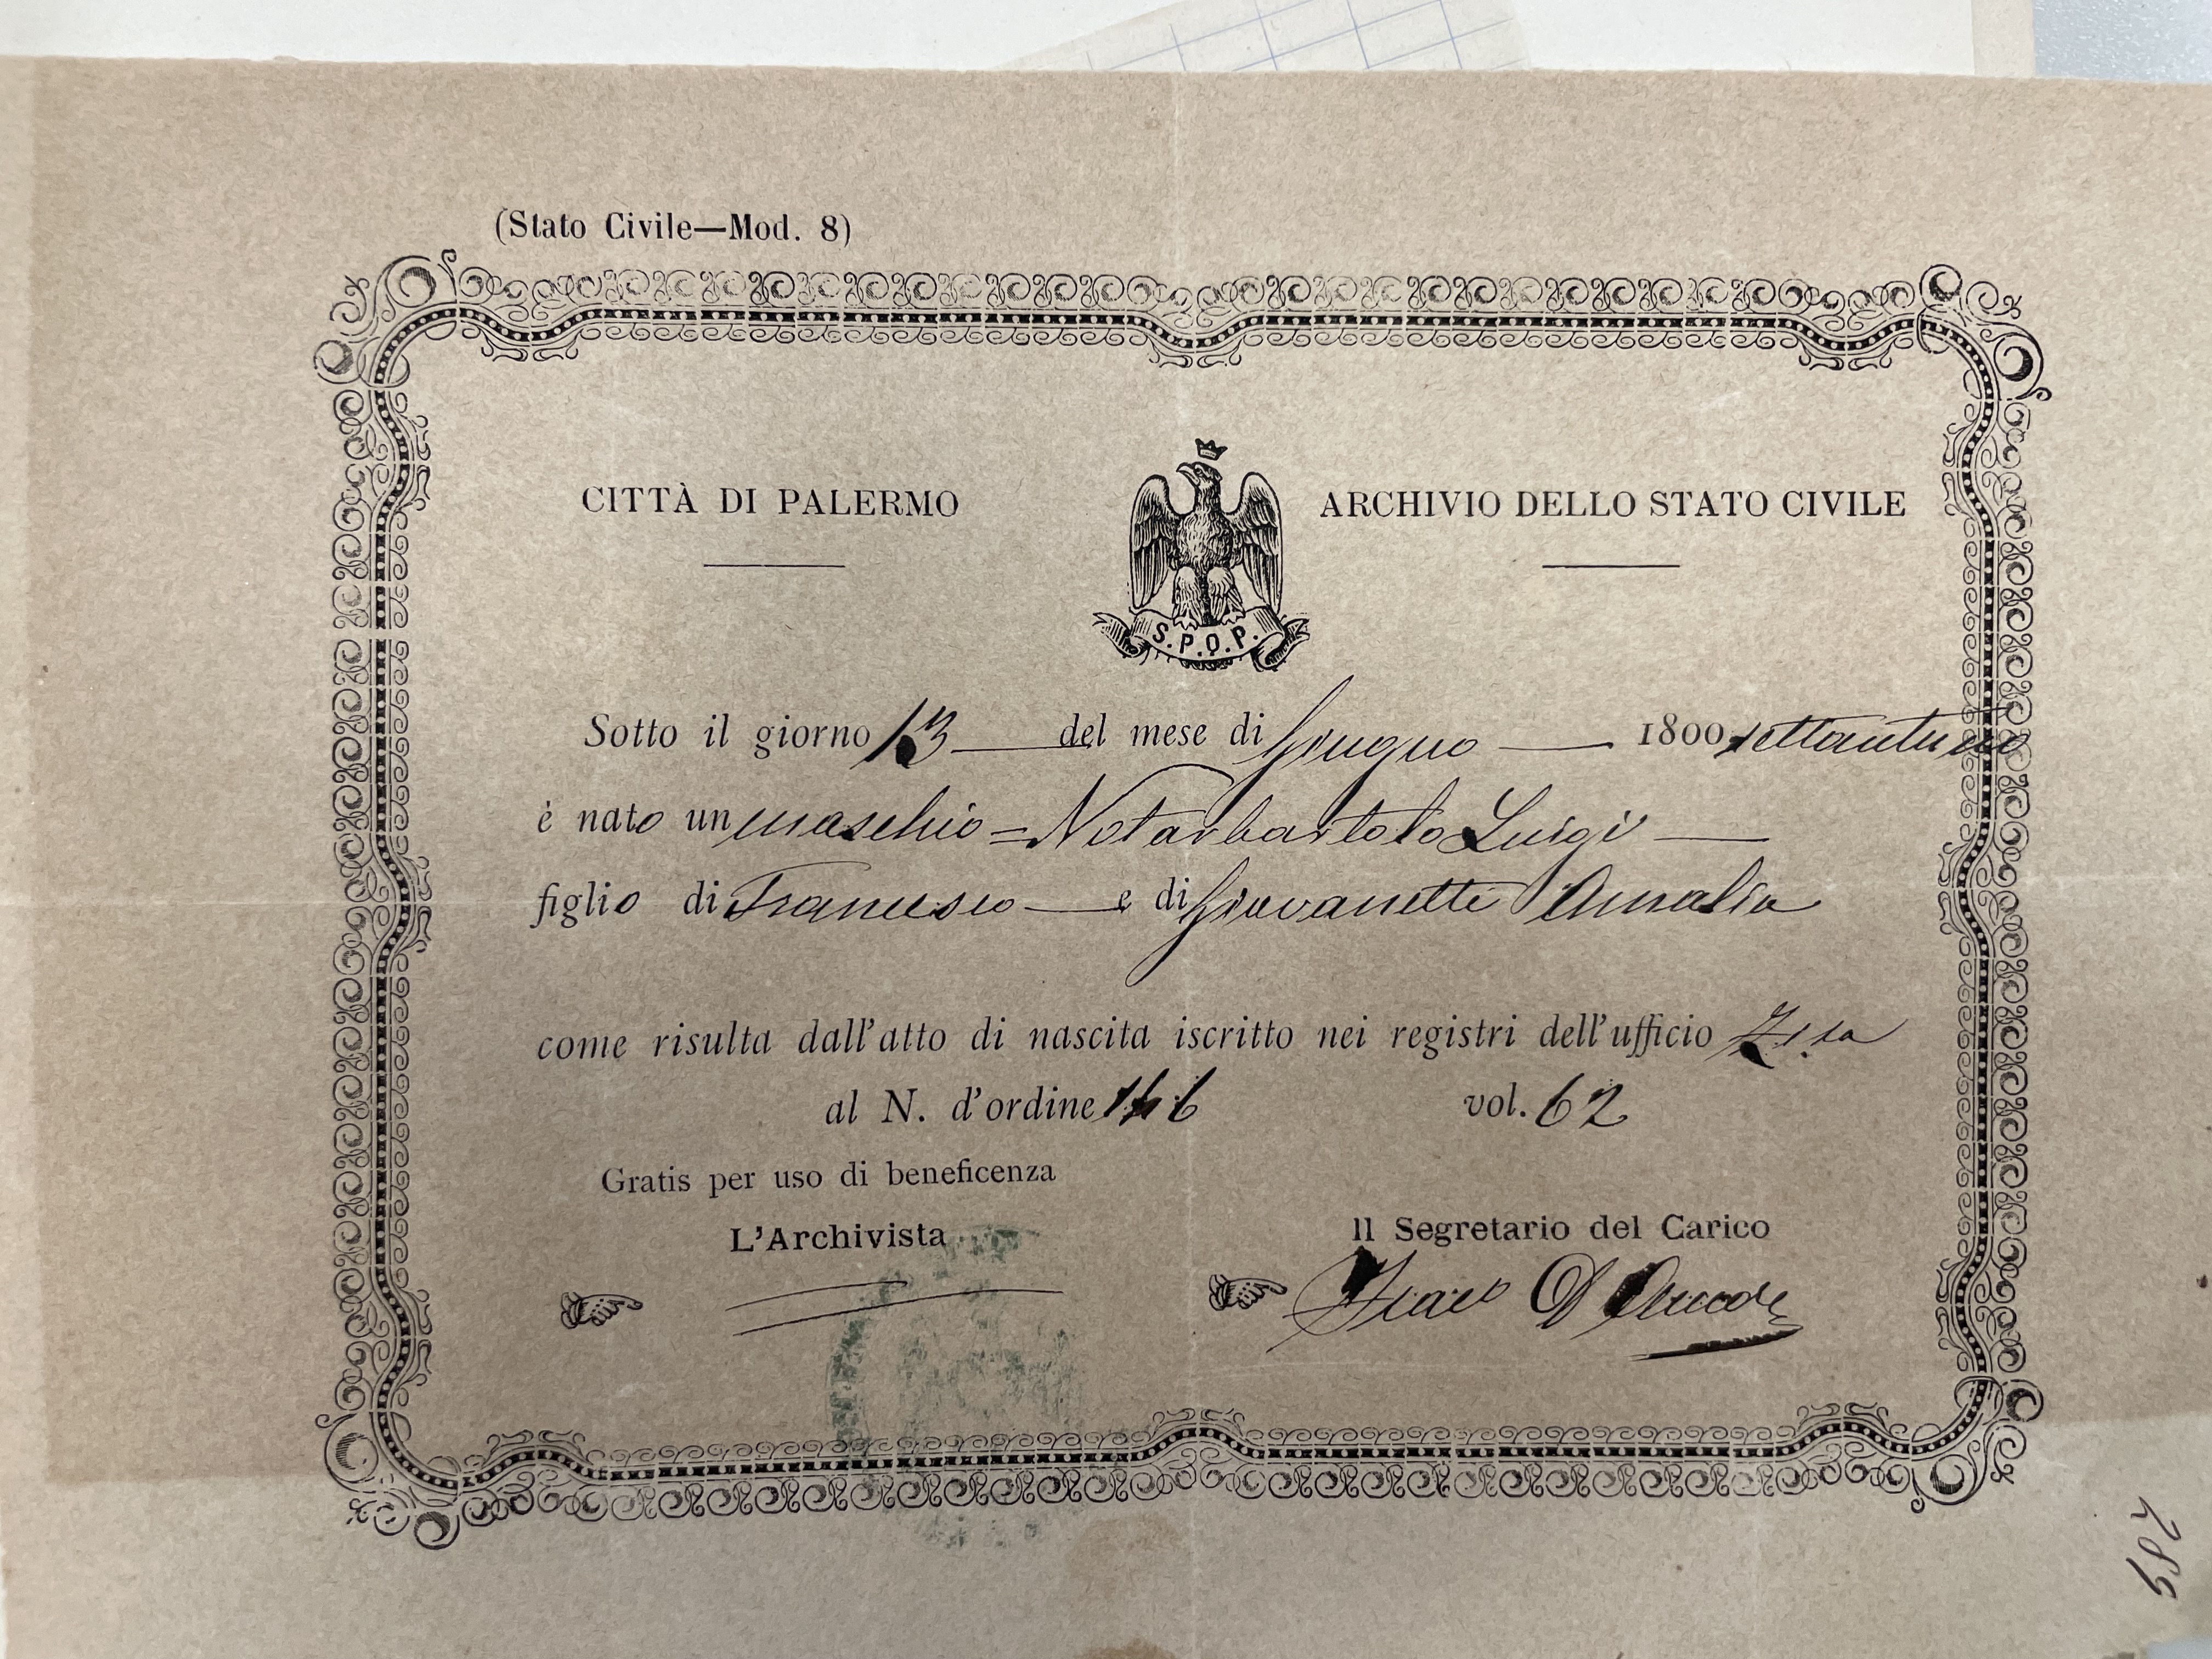 (Stato Civile—Mod. 8)
CITTÀ DI PALERMO
ARCHIVIO DELLO STATO CIVILE
S.P.Q.P.
Sotto il giorno 13 del mese di Giugno 1800 settantuno
è nato un maschio = Notarbartolo Luigi
figlio di Francesco e di Giovanetti Amalia
come risulta dall'atto di nascita iscritto nei registri dell'ufficio Zisa
al N. d'ordine 146 vol. 62
Gratis per uso di beneficenza
L'Archivista
Il Segretario del Carico
289